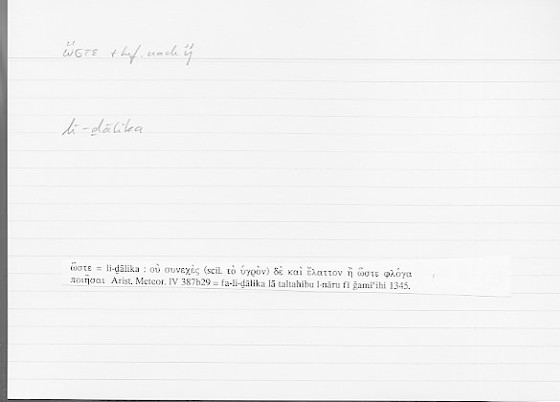 ὥστε + Inf. nach ἤ
li-ḏālika
ὥστε = li-ḏālika : οὐ συνεχὲς (scil. τὸ ὑγρὸν) δὲ καὶ ἔλαττον ἢ ὥστε φλόγα
ποιῆσαι Arist. Meteor. IV 387b29 = fa-li-ḏālika lā taltahibu l-nāru fī ǧamīʿihi 1345.